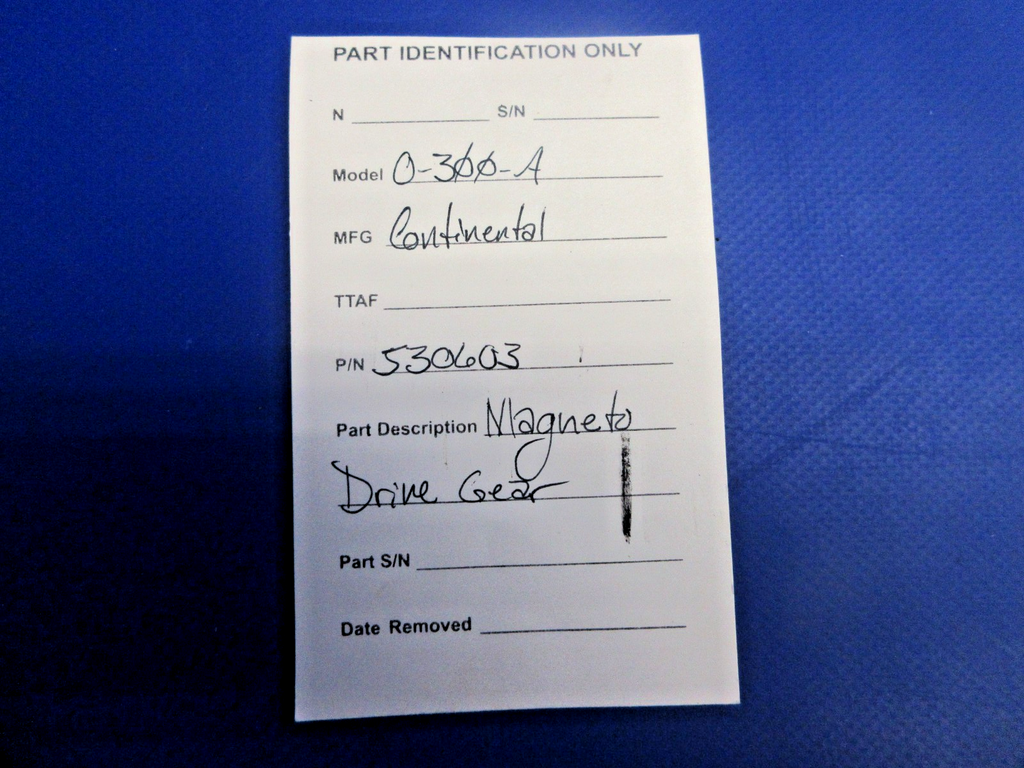 PART IDENTIFICATION ONLY
N S/N
Model O-300-A
MFG Continental
TTAF
P/N 530603
Part Description Magneto
Drive Gear
Part S/N
Date Removed